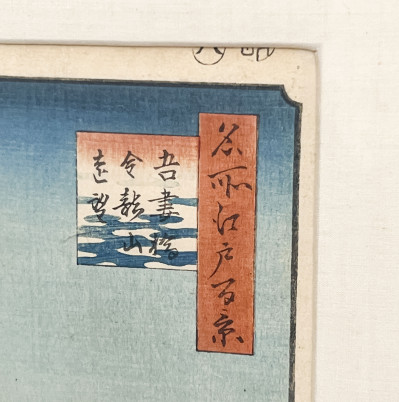 名所江戸百景
吾妻橋
金龍山
遠望